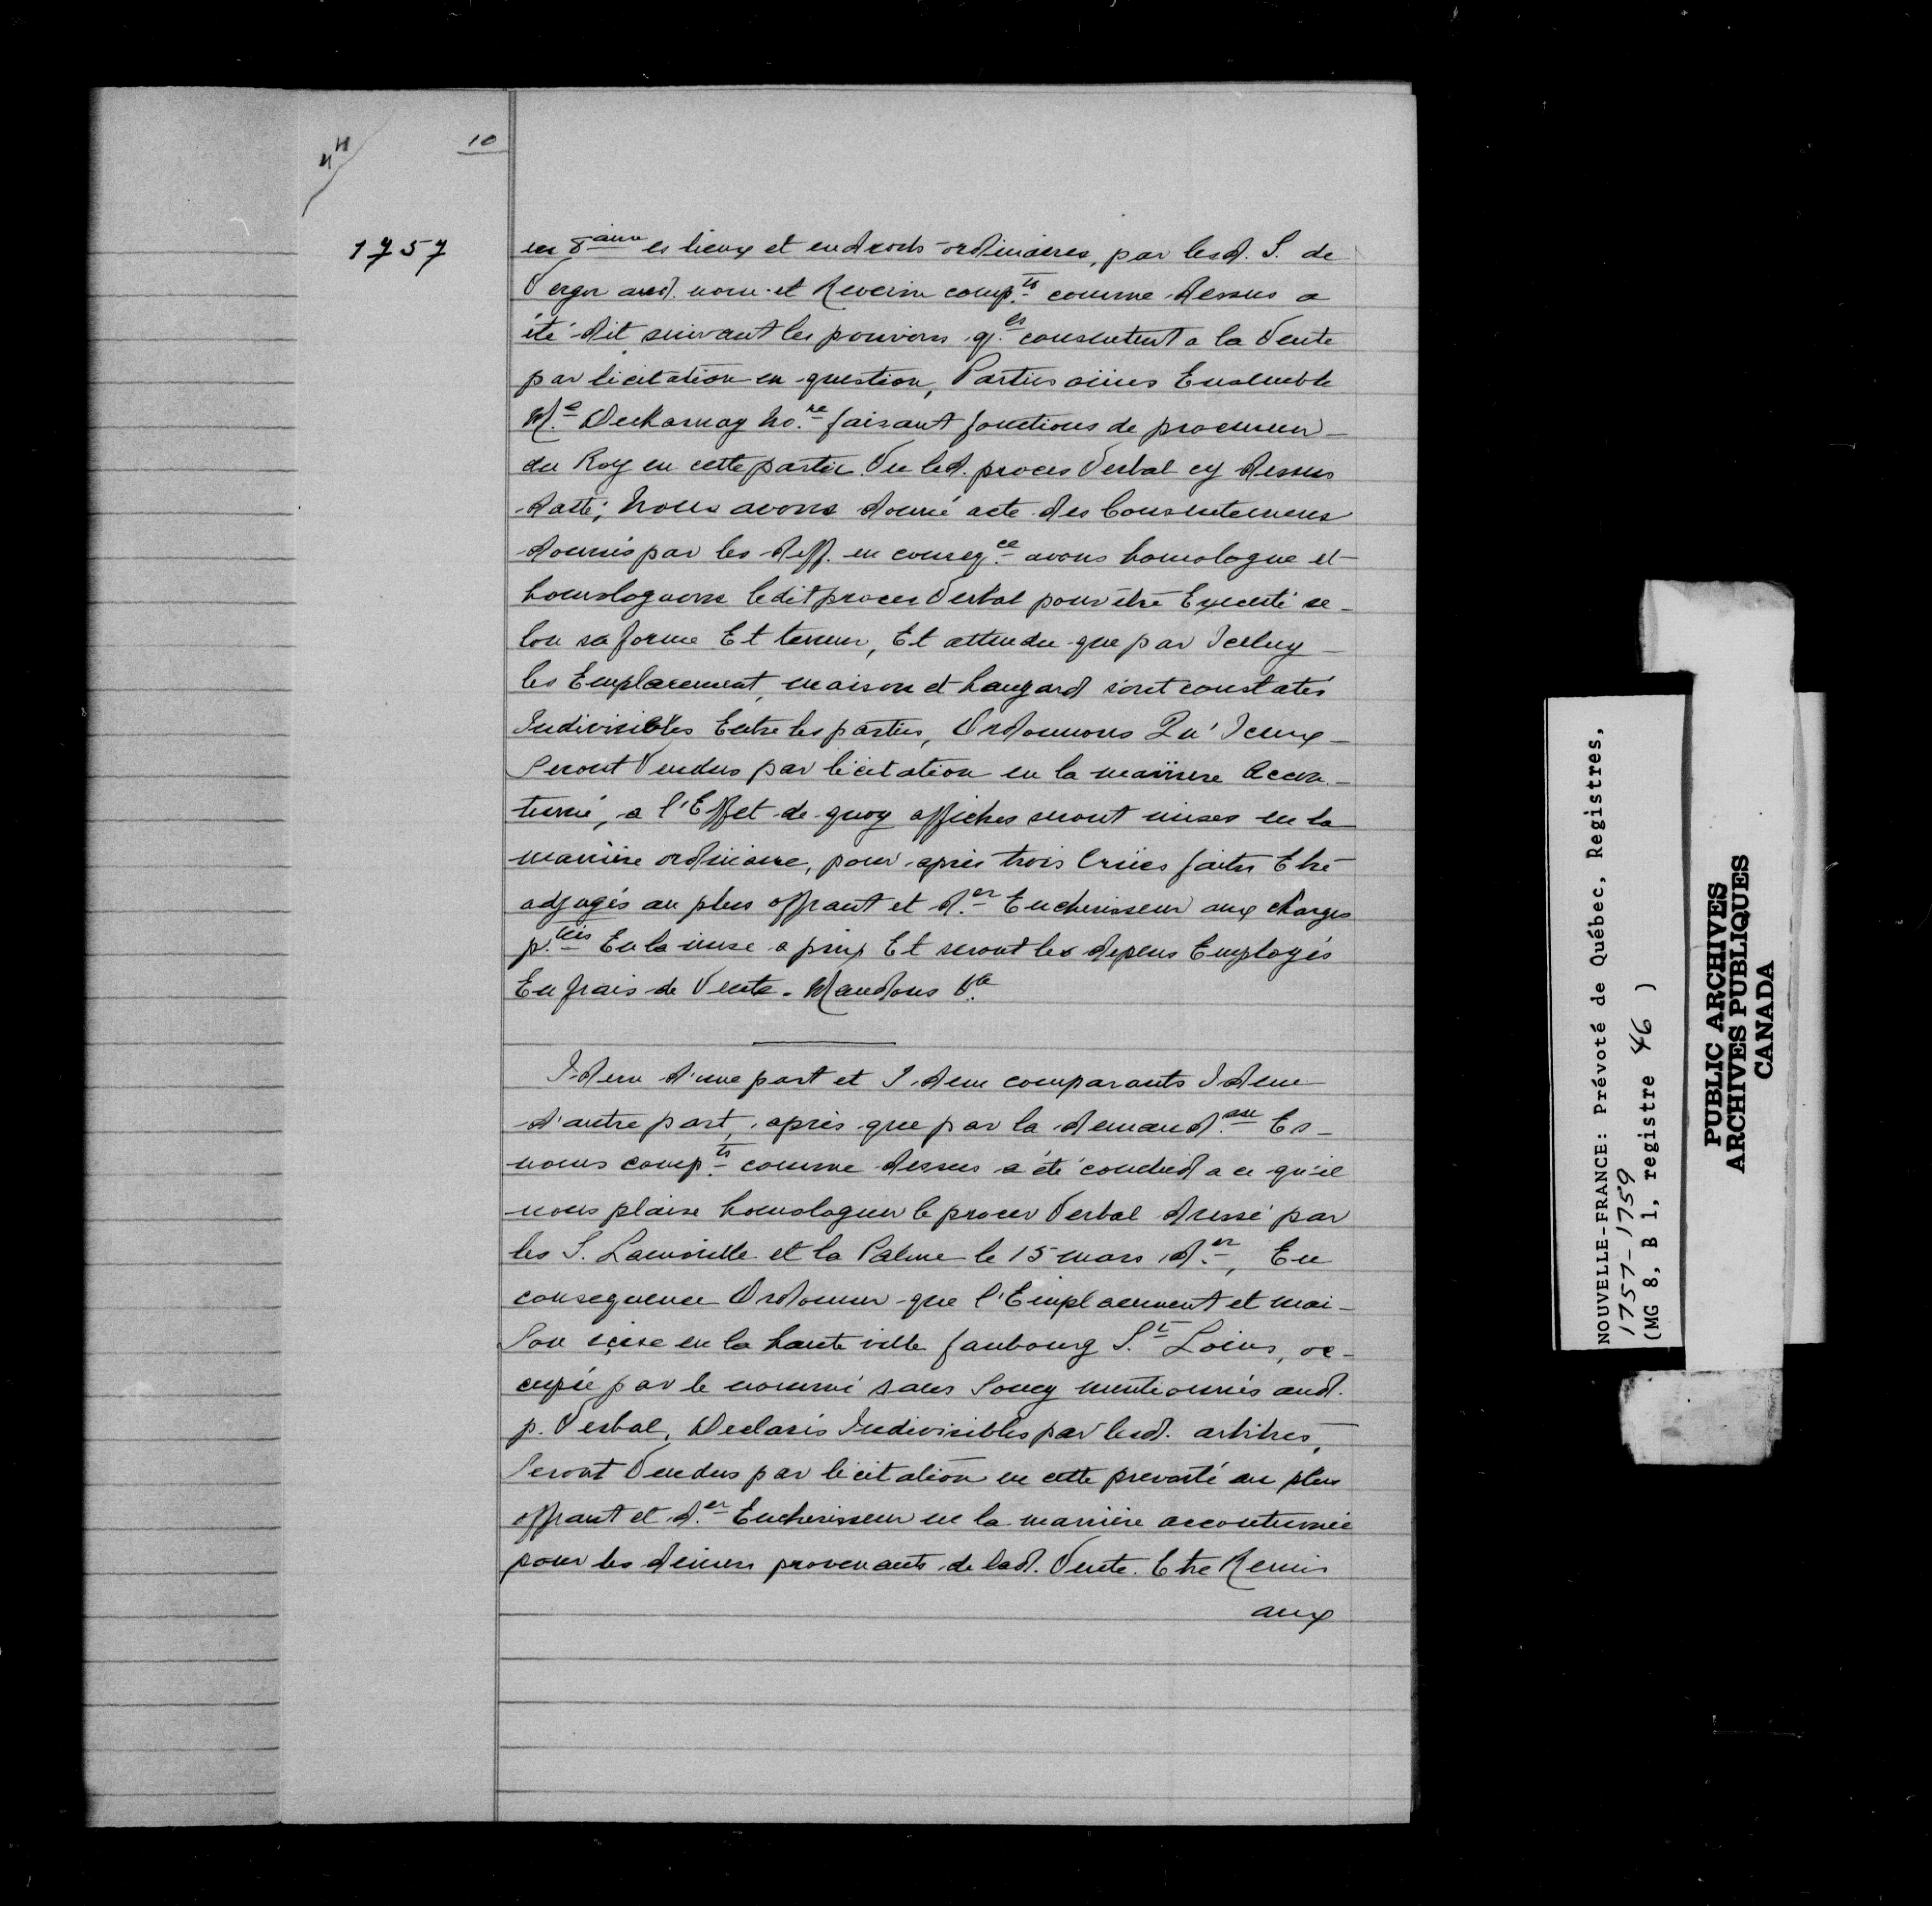 10
1757
en 8aine es lieux et endroits ordinaires, par lesd. S. de
Vergor aud. nom et Reverin comp.ts comme dessus a
été dit suivant les pouvoirs q.ls consentent a la Vente
par licitation en question, Parties oüies Ensemble
M.e Decharnay No.re faisant fonctions de procureur
du Roy en cette partie. Vu led. proces Verbal cy dessus
datté; Nous avons donné acte des Consentemens
donnés par les deff. en conseq.ce avons homologue et
homologuons ledit proces Verbal pour être Executé se-
lon sa forme Et teneur, Et attendu que par Iceluy
les Emplacement, maison et hangard sont constatés
Indivisibles Entre les parties, Ordonnons Qu'Iceux
Seront Vendus par licitation en la maniere Accou-
tumé, a l'Effet de quoy affiches seront mises en la
manière ordinaire, pour après trois Criées faites Etre
adjugés au plus offrant et d.er Encherisseur aux charges
p.tées En la mise a prix Et seront les depens Employés
En frais de Vente. Mandons &a
Idem d'une part et Idem comparants Idem
d'autre part, après que par la demand.sse Es
noms comp.ts comme dessus a été conclud a ce qu'il
nous plaise homologuer le proces Verbal dressé par
les S. Lamorille et la Palme le 15 mars d.er, En
consequence Ordonner que l'Emplacement et mai-
Son scise en la haute ville faubourg S.t Loüis, oc-
cupée par le nommé sans Soucy mentionnés aud.
p. Verbal, Declarés Indivisibles par lesd. arbitres,
Seront Vendus par licitation en cette prevosté au plus
offrant et d.er Encherisseur en la manière accoutumée
pour les deniers provenants de lad. Vente. Etre Remis
aux
NOUVELLE-FRANCE: Prévoté de Québec, Registres,
1757-1759
(MG 8, B 1, registre 46 )
PUBLIC ARCHIVES
ARCHIVES PUBLIQUES
CANADA